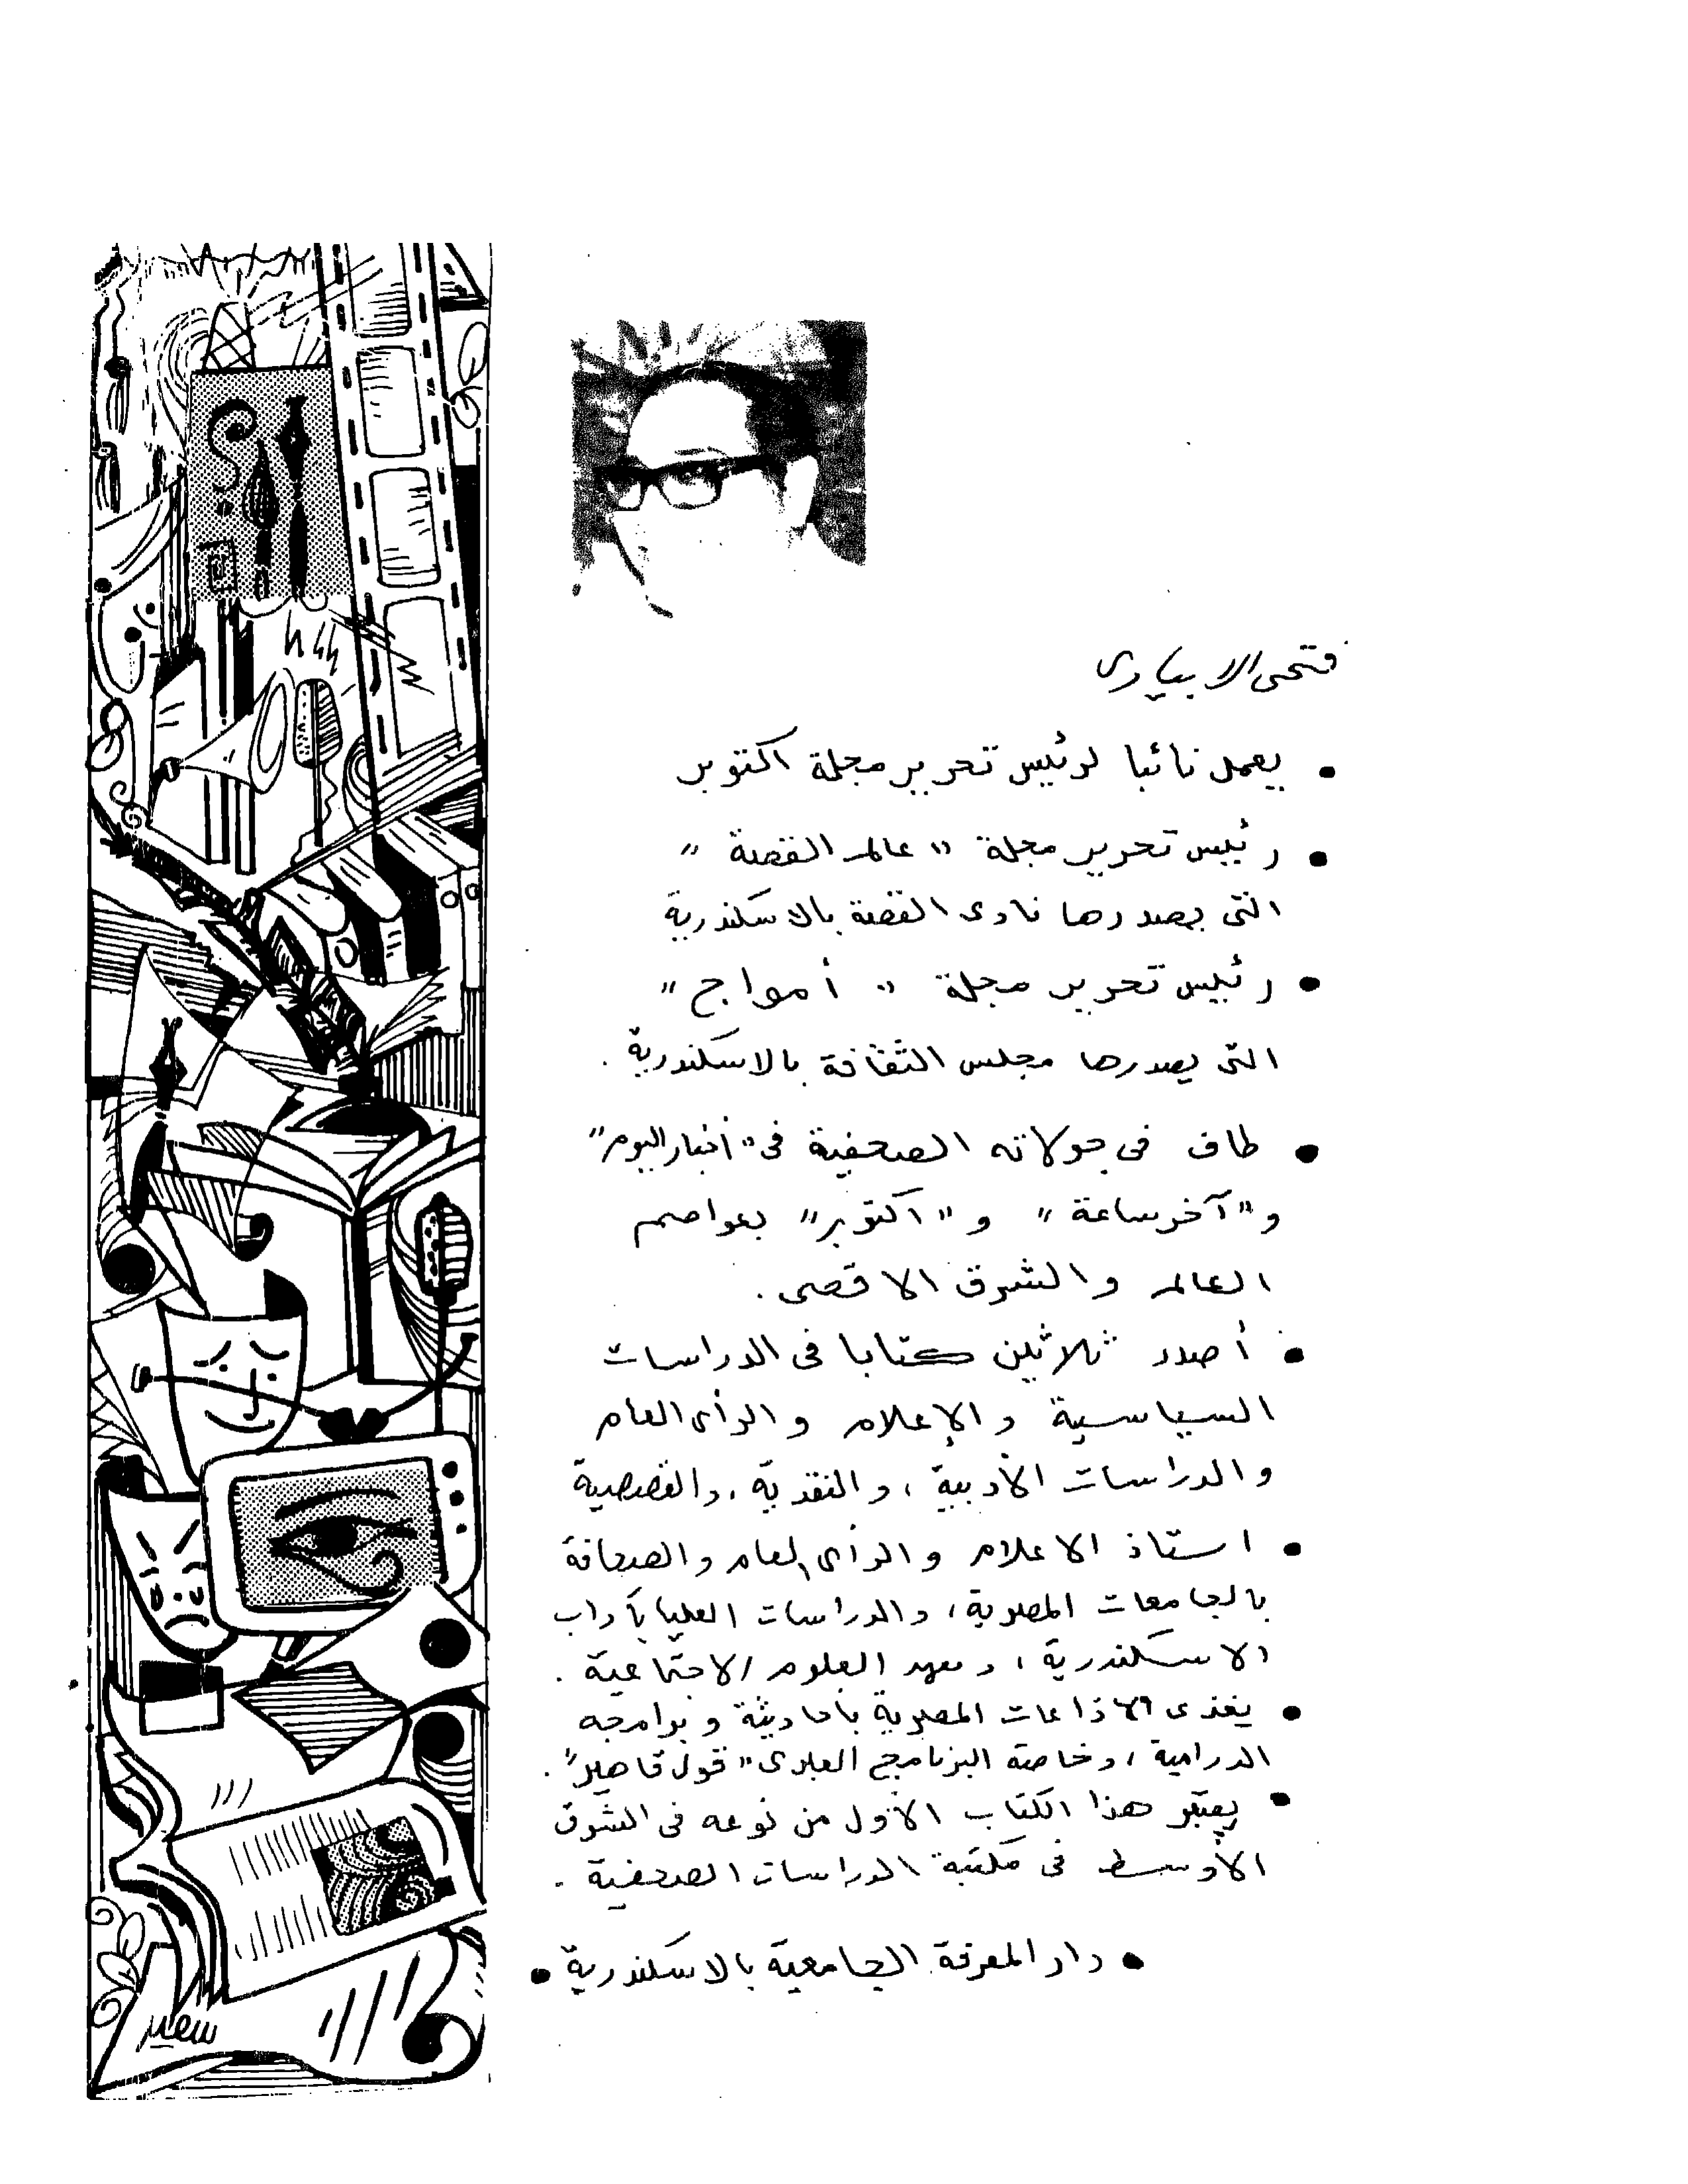 فتحى الابيارى
• يعمل نائبا لرئيس تحرير مجلة اكتوبر
• رئيس تحرير مجلة " عالم القصة "
التى يصدرها نادى القصة بالاسكندرية
• رئيس تحرير مجلة " أمواج "
التى يصدرها مجلس الثقافة بالاسكندرية .
• طاف فى جولاته الصحفية فى " أخبار اليوم "
و " آخر ساعة " و " اكتوبر " بعواصم
العالم والشرق الاقصى .
• أصدر ثلاثين كتابا فى الدراسات
السياسية والإعلام والرأى العام
والدراسات الأدبية ، والنقدية ، والقصصية
• استاذ الاعلام والرأى العام والصحافة
بالجامعات المصرية ، والدراسات العليا بآداب
الاسكندرية ، ومعهد العلوم الاجتماعية .
• يغذى الاذاعات المصرية باحاديثة وبرامجه
الدرامية ، وخاصة البرنامج العبرى " قول قاهير " .
• يعتبر هذا الكتاب الأول من نوعه فى الشرق
الأوسط فى مكتبة الدراسات الصحفية .
• دار المعرفة الجامعية بالاسكندرية •